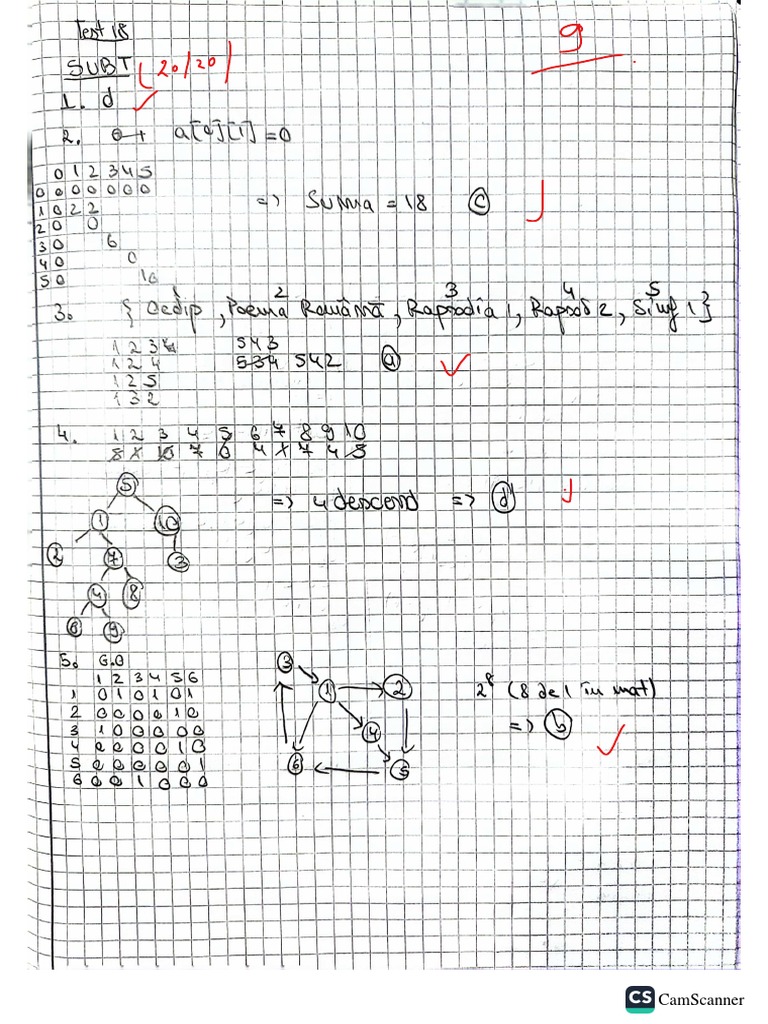 Test 18
9
SUBT (20/20)
1. d
2. a[0][1]=0
0 1 2 3 4 5
0 0 0 0 0 0 0
1 0 2 2
2 0 0
3 0 6
4 0 0
5 0 10
=> Suma = 18 c
1 2 3 4 5
3. { Oedip, Poema Română, Rapsodia 1, Rapsod 2, Simf 1}
1 2 3 4 5 4 3
1 2 4 534 542 a
1 2 5
1 3 2
4. 1 2 3 4 5 6 7 8 9 10
8 X 10 7 0 4 X 7 4 5
5
1 10
2 7 3
4 8
6 9
=> 4 descend => d
5. G.O
1 2 3 4 5 6
1 0 1 0 1 0 1
2 0 0 0 0 1 0
3 1 0 0 0 0 0
4 0 0 0 0 1 0
5 0 0 0 0 0 1
6 0 0 1 0 0 0
3
1 2
14
6 5
2^8 (8 de 1 în mat)
=> b
CS CamScanner